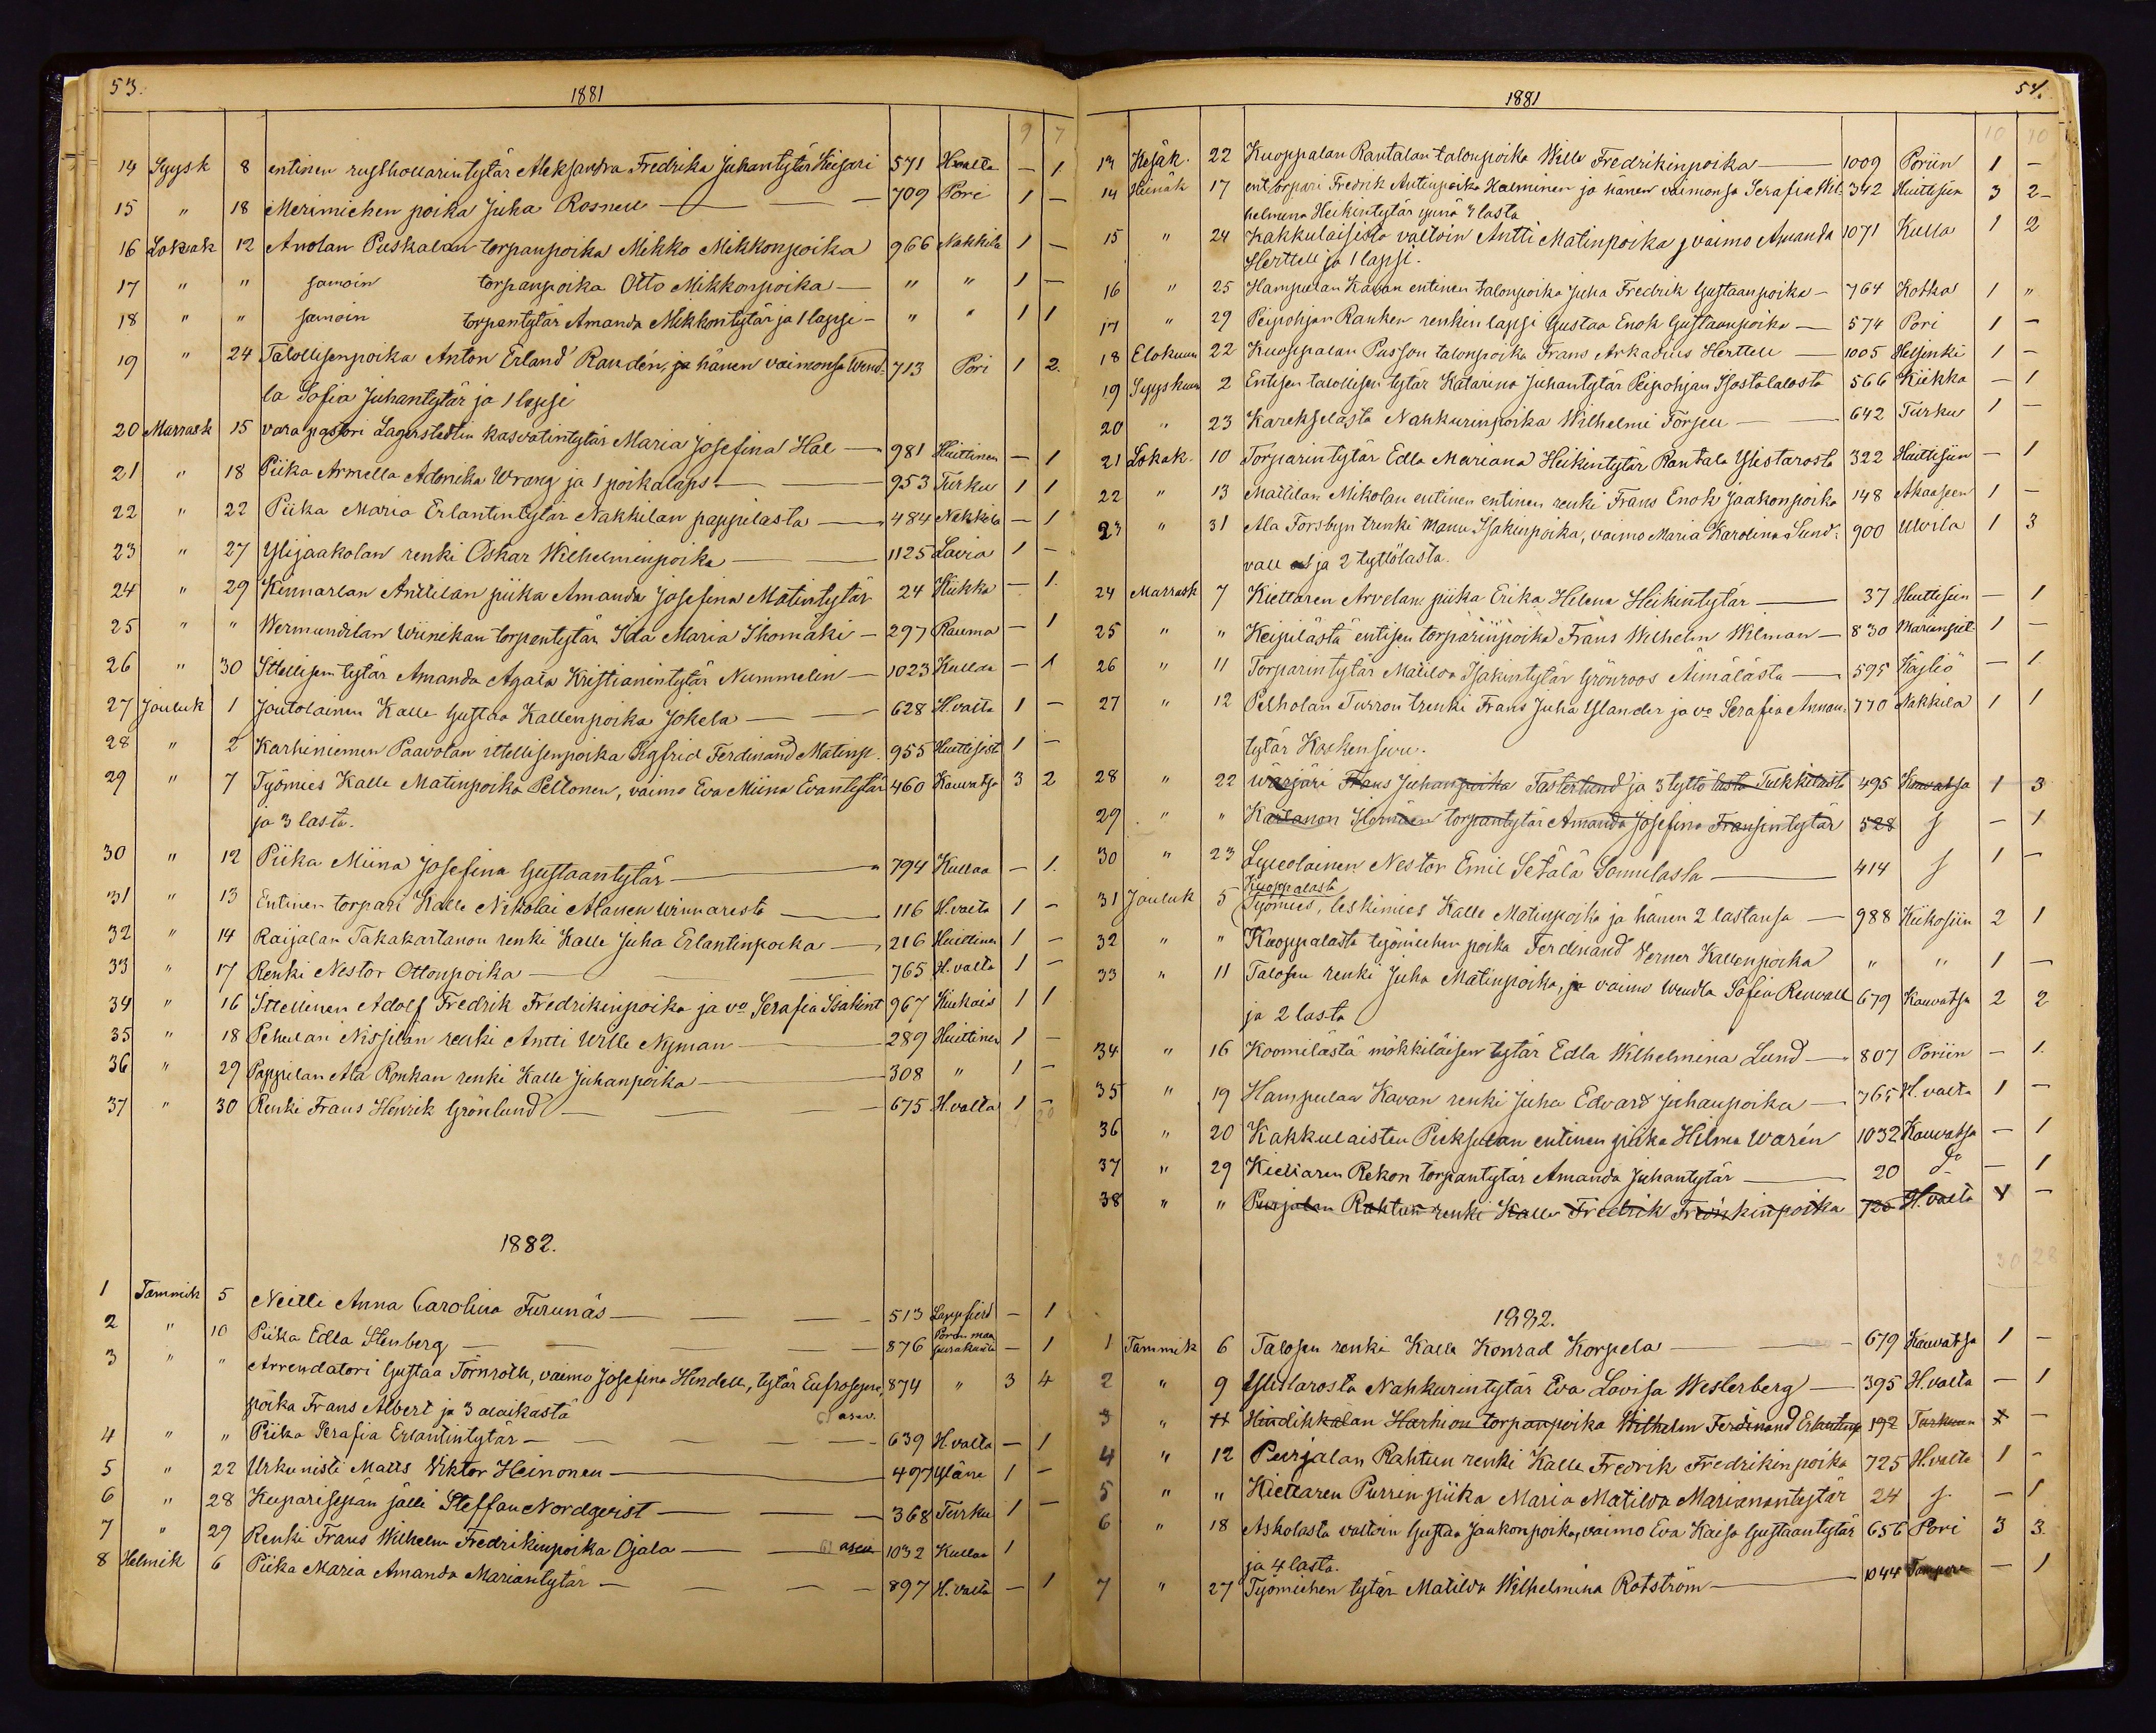 53.
1881
9 7
14 Syysk 8 entinen rusthollarintytär Aleksandra Fredrika Juhantytär Keisari 571 H.valta — 1
15 " 18 Merimiehen poika Juha Rosnell — 709 Pori 1 —
16 Lokak 12 Anolan Puskalan torpanpoika Mikko Mikkonpoika 966 Nakkila 1 —
17 " " samoin torpanpoika Otto Mikkonpoika — " " 1 —
18 " " samoin torpantytär Amanda Mikkontytär ja 1 lapsi — " " 1 1
19 " 24 Talollisenpoika Anton Erland Randén, ja hänen vaimonsa Wend- 713 Pori 1 2.
la Sofia Juhantytär ja 1 lapsi
20 Marrask 15 vara pastori Lagerstedtin kasvatintytär Maria Josefina Hal — 981 Huittinen — 1
21 " 18 Piika Armella Adonika Wrang ja 1 poikalaps. — 953 Turku 1 1
22 " 22 Piika Maria Erlantintytär Nakkilan pappilasta — 484 Nakkila — 1
23 " 27 Ylijaakolan renki Oskar Wilhelminpoika — 1125 Lavia 1 —
24 " 29 Kinnarlan Anttilan piika Amanda Josefina Matintytär 24 Kiikka — 1.
25 " " Wermundilan Wiinikan torpantytär Ida Maria Ihomäki — 297 Rauma — 1
26 " 30 Ittellisen tytär Amanda Agata Kristianintytär Nummelin — 1023 Kullaa — 1
27 Jouluk 1 Joutolainen Kalle Gustaa Kallenpoika Jokela — 628 H.valta 1 —
28 " 2 Karhiniemen Paavolan ittellisenpoika Sigfrid Ferdinand Matinp. 955 Huittisist 1 —
29 " 7 Työmies Kalle Matinpoika Peltonen, vaimo Eva Miina Evantytär 460 Kauvatsa 3 2
ja 3 lasta.
30 " 12 Piika Miina Josefina Gustaantytär — 794 Kullaa — 1.
31 " 13 Entinen torpari Kalle Nikolai Alanen Winnaresta — 116 H.valta 1 —
32 " 14 Raijalan Takakartanon renki Kalle Juha Erlantinpoika — 216 Huittinen 1 —
33 " 17 Renki Nestor Ottonpoika — 765 H.valta 1 —
34 " 16 Ittellinen Adolf Fredrik Fredrikinpoika ja vo Serafia Isakint 967 Kiukais 1 1
35 " 18 Pehulan Nissilän renki Antti Wille Nyman — 289 Huittinen 1 —
36 " 29 Pappilan Ala Ronkan renki Kalle Juhanpoika — 308 " 1 —
37 " 30 Renki Frans Henrik Grönlund — 675 H.valta 1 —
20
1882.
1 Tammik 5 Neitti Anna Carolina Furunäs — 513 Lappfjerd — 1
2 " 10 Piika Edla Stenberg — 876 Porin maa seurakunta — 1
3 " " Arrendatori Gustaa Törnroth, vaimo Josefina Hindell, tytär Eufrosyne, 874 " 3 4
poika Frans Albert ja 3 alaikästä
4 " " Piika Serafia Erlantintytär — 639 H.valta — 1
5 " 22 Urkunisti Matts Wiktor Heinonen — 497 Yläne 1 —
6 " 28 Kuparisepän sälli Steffan Nordqvist — 368 Turku 1 —
7 " 29 Renki Frans Wilhelm Fredrikinpoika Ojala — 1032 Kullaa 1
8 Helmik 6 Piika Maria Amanda Mariantytär — 897 H.valta — 1
54.
1881
10 10
13 Kesäk. 22 Kuoppalan Rantalan talonpoika Wille Fredrikinpoika — 1009 Poriin 1 —
14 Heinäk 17 ent torpari Fredrik Antinpoika Halminen ja hänen vaimonsa Serafia Wil- 342 Huittisiin 3 2 —
helmina Heikintytär ynnä 3 lasta
15 " 24 Kakkulaisista valtoin Antti Matinpoika j vaimo Amanda 1071 Kullaa 1 2
Herttell ja 1 lapsi.
16 " 25 Hampulan Kavan entinen talonpoika Juha Fredrik Gustaanpoika — 764 Kotka 1 "
17 " 29 Peipohjan Ranken renkin lapsi Gustaa Enok Gustaanpoika — 574 Pori 1 —
18 Elokuun 22 Kuoppalan Passon talonpoika Frans Arkadius Herttell — 1005 Helsinki 1 —
19 Syyskuun 2 Entisen talollisen tytär Katarina Juhantytär Peipohjan Isostalosta 566 Kiikka — 1
20 " 23 Karekselasta Nahkurinpoika Wilhelmi Forsell — 642 Turku 1 —
21 Lokak. 10 Torparintytär Edla Mariana Heikintytär Rantala Ylistarosta 322 Huittisiin — 1
22 " 13 Mattilan Mikolan entinen entinen renki Frans Enok Jaakonpoika 148 Akaaseen 1 —
23 " 31 Ala Forsbyn trenki Manu Isakinpoika, vaimo Maria Karolina Sund- 900 Ulvila 1 3
vall ja 2 tyttölasta.
24 Marrask 7 Kiettaren Arvelan piika Erika Helena Heikintytär — 37 Huittisiin — 1
25 " " Keipilästä entisen torparinpoika Frans Wilhelm Wilman — 830 Marianpiel 1 —
26 " 11 Torparintytär Matilda Isakintytär Grönroos Äimälästä — 595 Käyliö — 1
27 " 12 Pelholan Turron trenki Frans Juha Ylander ja vo Serafia Annan- 770 Nakkila 1 1
tytär Koskensivu.
28 " 22 Wärjäri Frans Juhanpoika Fasterlund ja 3 tyttö lasta Tulkkilasta 495 Kauvatsa 1 3
29 " " Karlanon Ylönäen torpantytär Amanda Josefina Fransintytär 528 s — 1
30 " 23 Lyseolainen Nestor Emil Setälä Sonnilasta — 414 s 1 —
Kuoppalasta
31 Jouluk 5 Työmies, leskimies Kalle Matinpoika ja hänen 2 lastansa — 988 Kiikoisiin 2 1
32 " " Kuoppalasta työmiehen poika Ferdinand Verner Kallenpoika " " 1 —
33 " 11 Talosen renki Juha Matinpoika, ja vaimo Wendla Sofia Renvall 679 Kauvatsa 2 2
ja 2 lasta
34 " 16 Koomilästä mökkiläisen tytär Edla Wilhelmina Lund — 807 Poriin — 1.
35 " 19 Hampulan Kavan renki Juha Edvard Juhanpoika — 765 H.valta 1 —
36 " 20 Kakkulaisten Pieksulan entinen piika Hilma Warén 1032 Kauvatsa — 1
37 " 29 Kiettaren Rekon torpantytär Amanda Juhantytär — 20 Do — 1
38 " " Purjalan Rahtun renki Kalle Fredrik Fredrikinpoika 725 H.valta 1 —
30 28
1882.
1 Tammik 6 Talosen renki Kalle Konrad Korpela — 679 Kauvatsa 1 —
2 " 9 Ylistarosta Nahkurintytär Eva Lovisa Westerberg — 395 H.valta — 1
3 " 11 Hindikkalan Harhion torpanpoika Wilhelm Ferdinand Erlantinp 192 Turkuun 1 —
4 " 12 Purjalan Rahtun renki Kalle Fredrik Fredrikinpoika 725 H.valta 1 —
5 " " Kiettaren Purrin piika Maria Matilda Mariantytär 24 s. — 1
6 " 18 Askolasta valtoin Gustaa Jaakonpoika, vaimo Eva Kaisa Gustaantytär 656 Pori 3 3.
ja 4 lasta.
7 " 27 Työmiehen tytär Matilda Wilhelmina Rotström — 1044 Tampere — 1